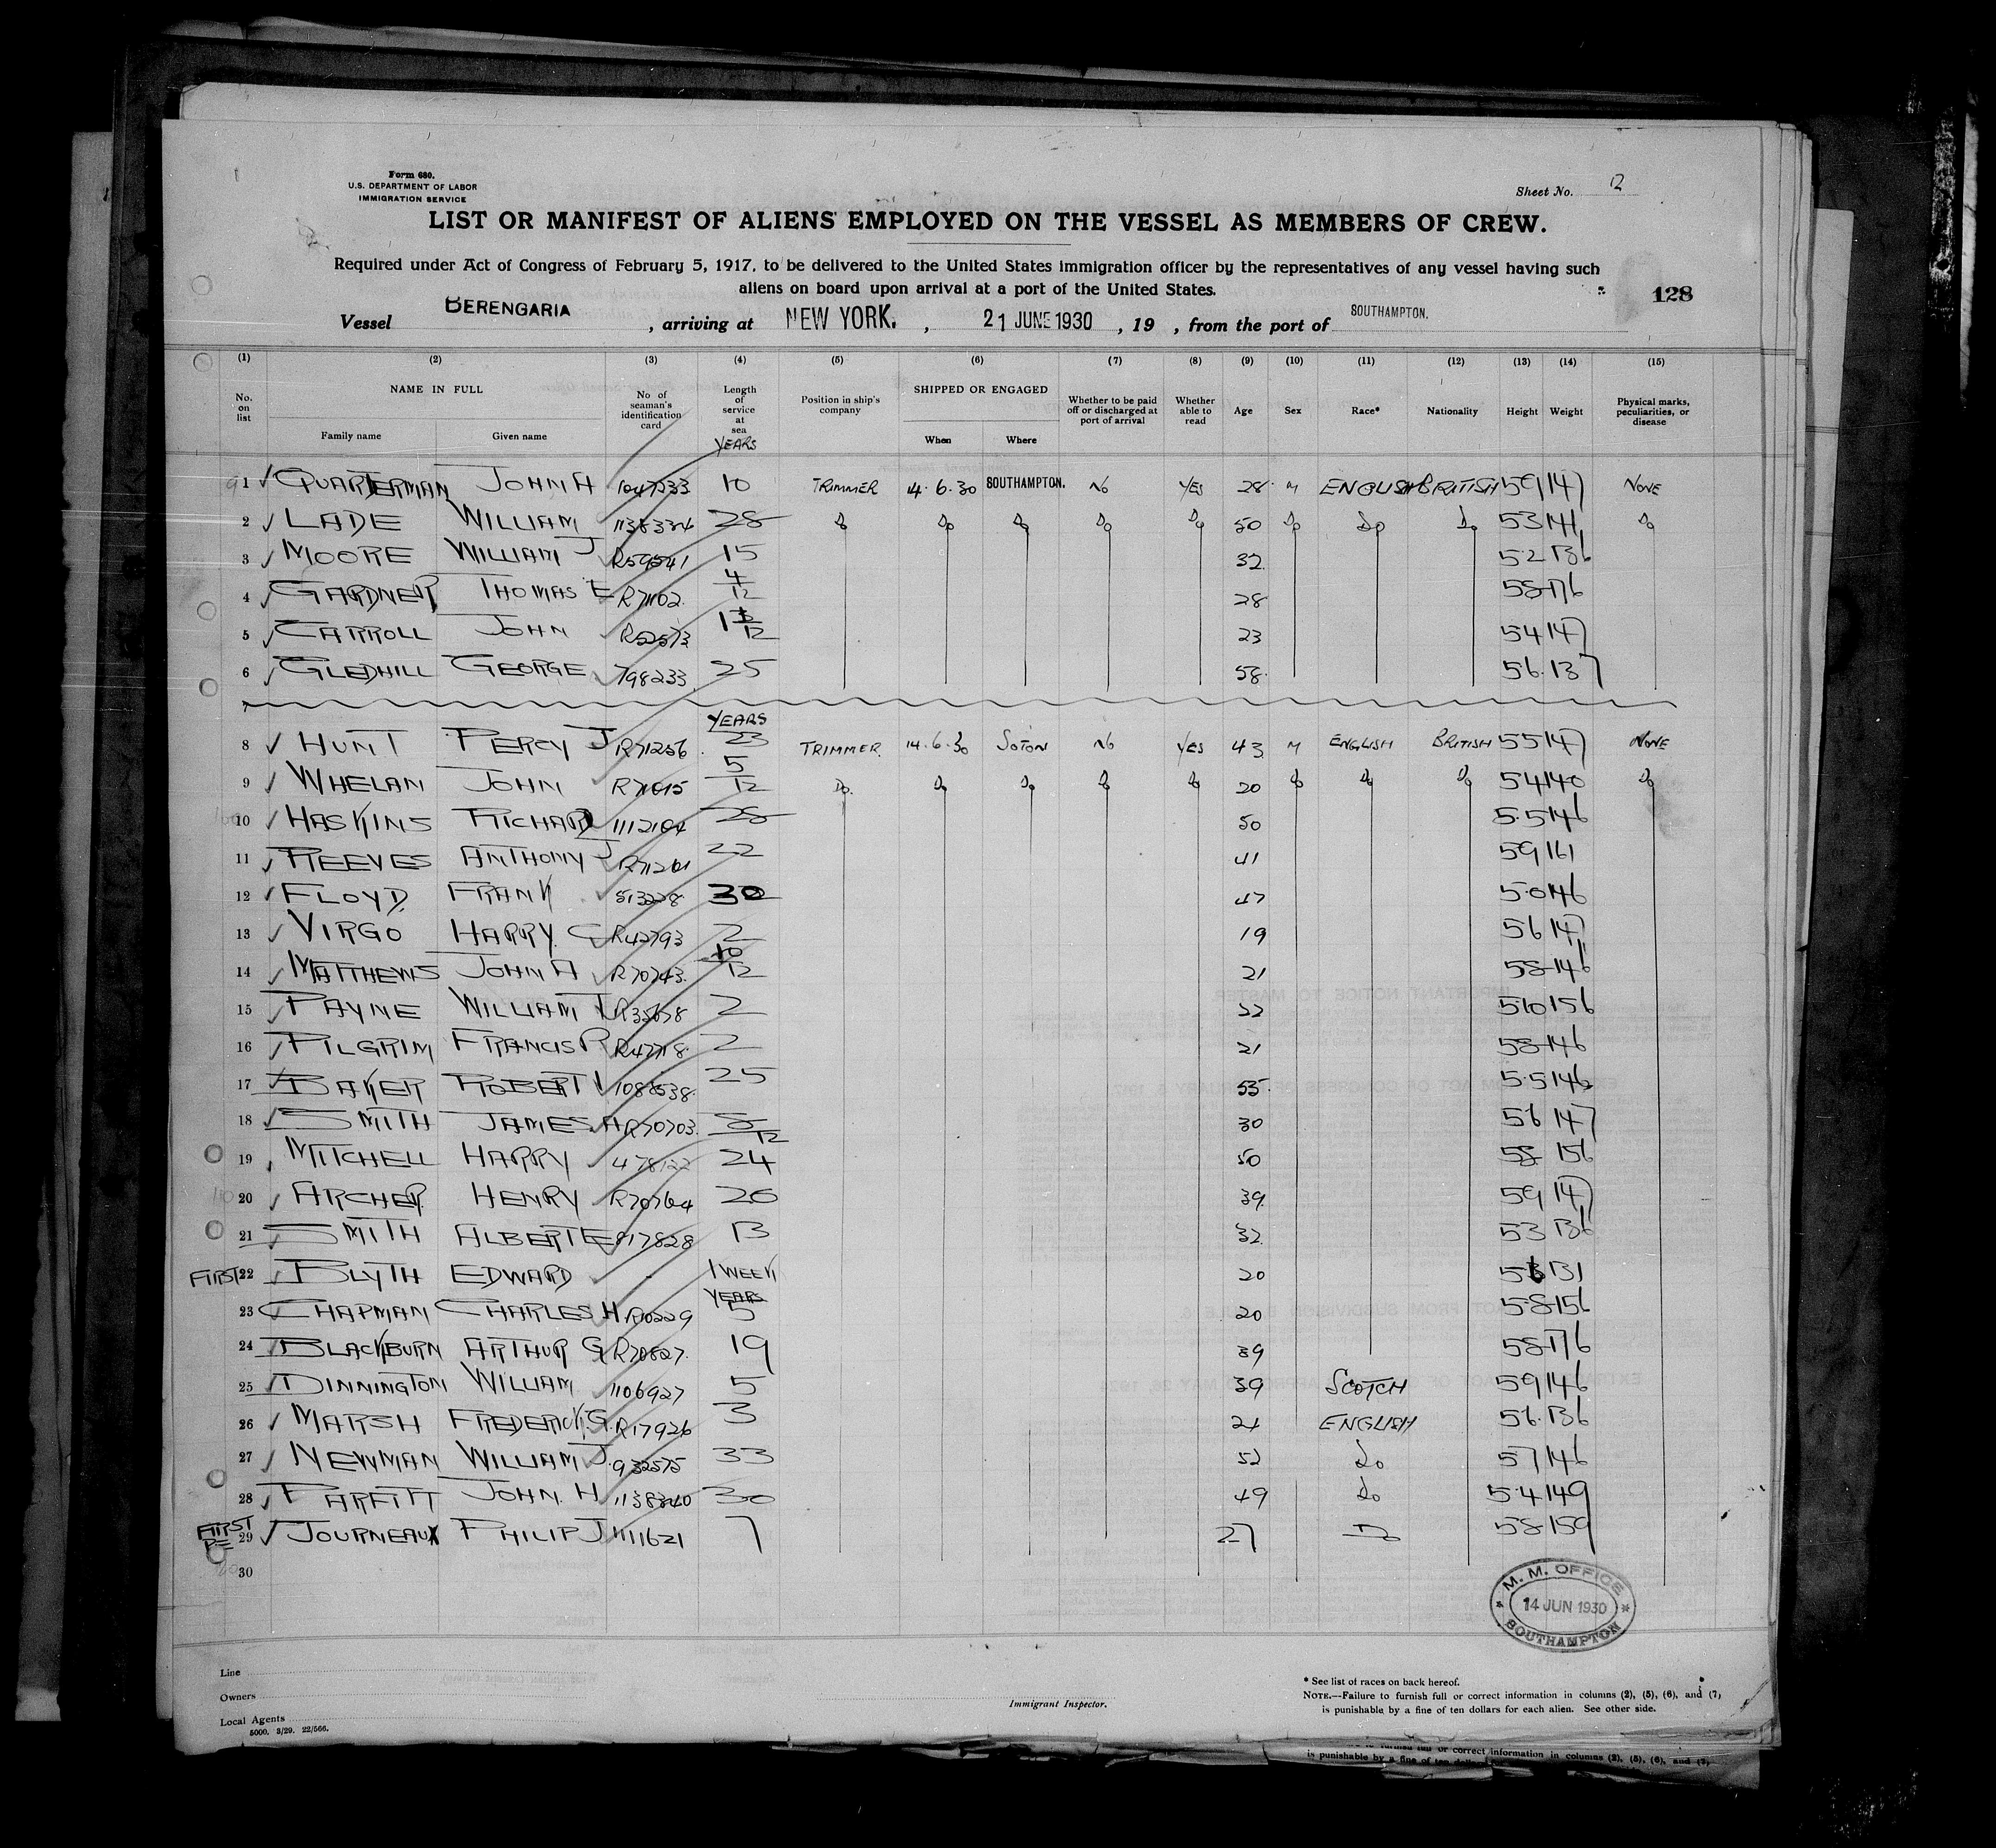 Form 680.
U.S. DEPARTMENT OF LABOR
IMMIGRATION SERVICE
Sheet No. 12
LIST OR MANIFEST OF ALIENS EMPLOYED ON THE VESSEL AS MEMBERS OF CREW.
Required under Act of Congress of February 5, 1917, to be delivered to the United States immigration officer by the representatives of any vessel having such
aliens on board upon arrival at a port of the United States.
128
Vessel BERENGARIA, arriving at NEW YORK., 21 JUNE 1930, 19 , from the port of SOUTHAMPTON.
(1) (2) (3) (4) (5) (6) (7) (8) (9) (10) (11) (12) (13) (14) (15)
No. on list NAME IN FULL Family name Given name No of seaman's identification card Length of service at sea YEARS Position in ship's company SHIPPED OR ENGAGED When Where Whether to be paid off or discharged at port of arrival Whether able to read Age Sex Race* Nationality Height Weight Physical marks, peculiarities, or disease
1 QUARTERMAN JOHN A 1047233 10 TRIMMER 14.6.30 SOUTHAMPTON. NO YES 28 M ENGLISH BRITISH 59 147 NONE
2 LADE WILLIAM 1138334 28 Do Do Do Do Do 50 Do Do Do 53 141 Do
3 MOORE WILLIAM J R59541 15 32 52 136
4 GARDNER THOMAS E R71102 4/12 28 58 176
5 CARROLL JOHN R52573 23 54 147
6 GLEDHILL GEORGE 798233 25 58 56 137
7
YEARS
8 HUNT PERCY J R71256 23 TRIMMER 14.6.30 SOTON NO YES 43 M ENGLISH BRITISH 55 147 NONE
9 WHELAN JOHN R71015 5/12 Do. Do Do Do Do 20 Do Do Do 54 140 Do
10 HASKINS RICHARD 1112104 28 50 5.5 146
11 REEVES ANTHONY J R71201 22 41 59 161
12 FLOYD FRANK 513228 30 47 5.0 146
13 VIRGO HARRY C R42793 2 19 56 147
14 MATTHEWS JOHN A R70743 10/12 21 58 146
15 PAYNE WILLIAM J R35658 2 22 510 156
16 PILGRIM FRANCIS R R47718 2 21 58 146
17 BAKER ROBERT 1088538 25 55 5.5 146
18 SMITH JAMES H R70703 8/12 30 56 147
19 MITCHELL HARRY 478122 24 50 58 156
20 ARCHER HENRY R70764 20 39 59 147
21 SMITH ALBERT E 817828 13 32 53 136
FIRST 22 BLYTH EDWARD - 1 WEEK 20 131
YEARS
23 CHAPMAN CHARLES H R10229 5 20 58 156
24 BLACKBURN ARTHUR G R70827 19 39 58 176
25 DINNINGTON WILLIAM 1106927 5 39 SCOTCH 59 146
26 MARSH FREDERICK G. R17926 3 21 ENGLISH 56 136
27 NEWMAN WILLIAM J. 932575 33 52 Do 57 146
28 PARFITT JOHN. H 1138340 30 49 Do 5.4 149
FIRST 29 JOURNEAUX PHILIP J 1111621 7 27 Do 58 159
30
M. M. OFFICE
14 JUN 1930
SOUTHAMPTON
Line
Owners
Local Agents
5000. 3/29. 22/566.
Immigrant Inspector.
* See list of races on back hereof.
NOTE.—Failure to furnish full or correct information in columns (2), (5), (6), and (7),
is punishable by a fine of ten dollars for each alien. See other side.
is punishable by a fine of ten dollars or correct information in columns (2), (5), (6), and (7)